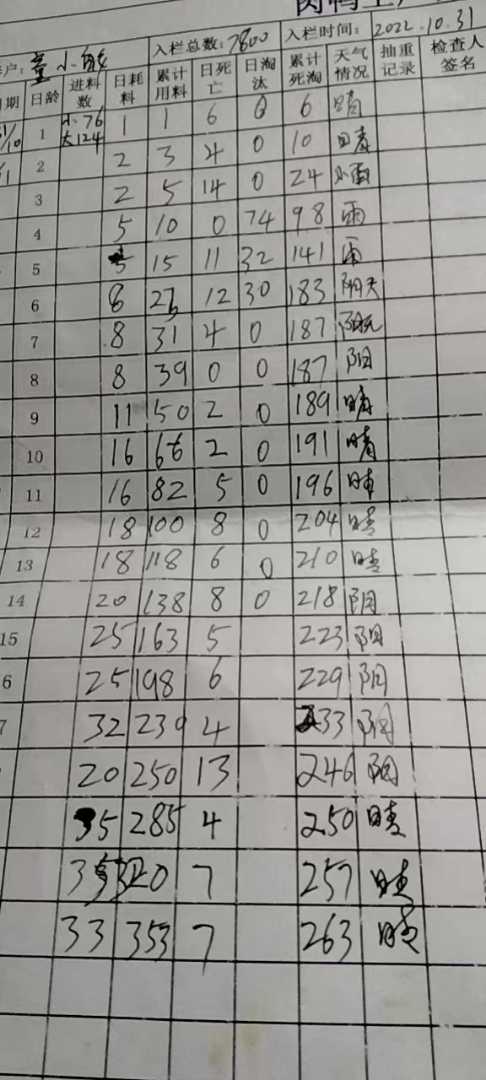 户：童小能 入栏总数：7800 入栏时间：2022.10.31
日期 日龄 进料数 日耗料 累计用料 日死亡 日淘汰 累计死淘 天气情况 抽重记录 检查人签名
31/10 1 小76 大124 1 1 6 0 6 晴
2 2 3 4 0 10 晴
3 2 5 14 0 24 小雨
4 5 10 0 74 98 雨
5 5 15 11 32 141 雨
6 8 23 12 30 183 阴天
7 8 31 4 0 187 阴天
8 8 39 0 0 187 阴
9 11 50 2 0 189 晴
10 16 66 2 0 191 晴
11 16 82 5 0 196 晴
12 18 100 8 0 204 晴
13 18 118 6 0 210 晴
14 20 138 8 0 218 阴
15 25 163 5 223 阴
6 25 198 6 229 阴
7 32 230 4 233 阴
20 250 13 246 阴
35 285 4 250 晴
35 320 7 257 晴
33 353 7 263 晴